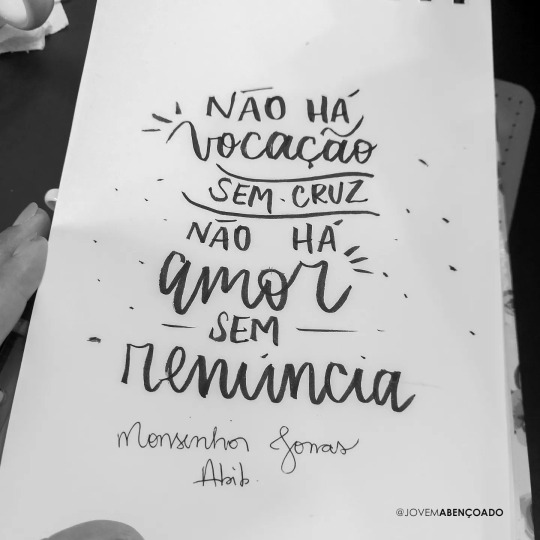 NÃO HÁ
vocação
SEM CRUZ
NÃO HÁ
amor
SEM
renúncia
Monsenhor Jonas
Abib.
@JOVEMABENÇOADO